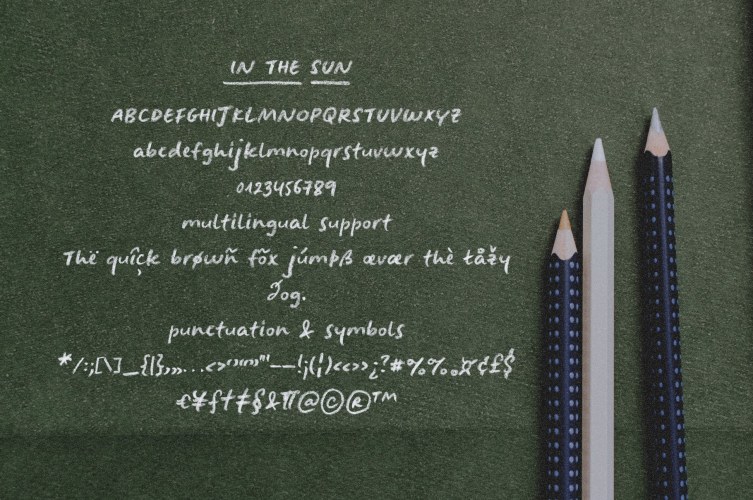 IN THE SUN
ABCDEFGHIJKLMNOPQRSTUVWXYZ
abcdefghijklmnopqrstuvwxyz
0123456789
multilingual support
Thë quîçk brøwñ fõx júmþß ævær thè łåžy
ðog.
punctuation & symbols
*/:;[\]_{|}‚„…<>‘’“”'"–—!¡(¦)‹‹››¿?#%‰¤¢£$
€¥ƒ†‡§&¶@©®™